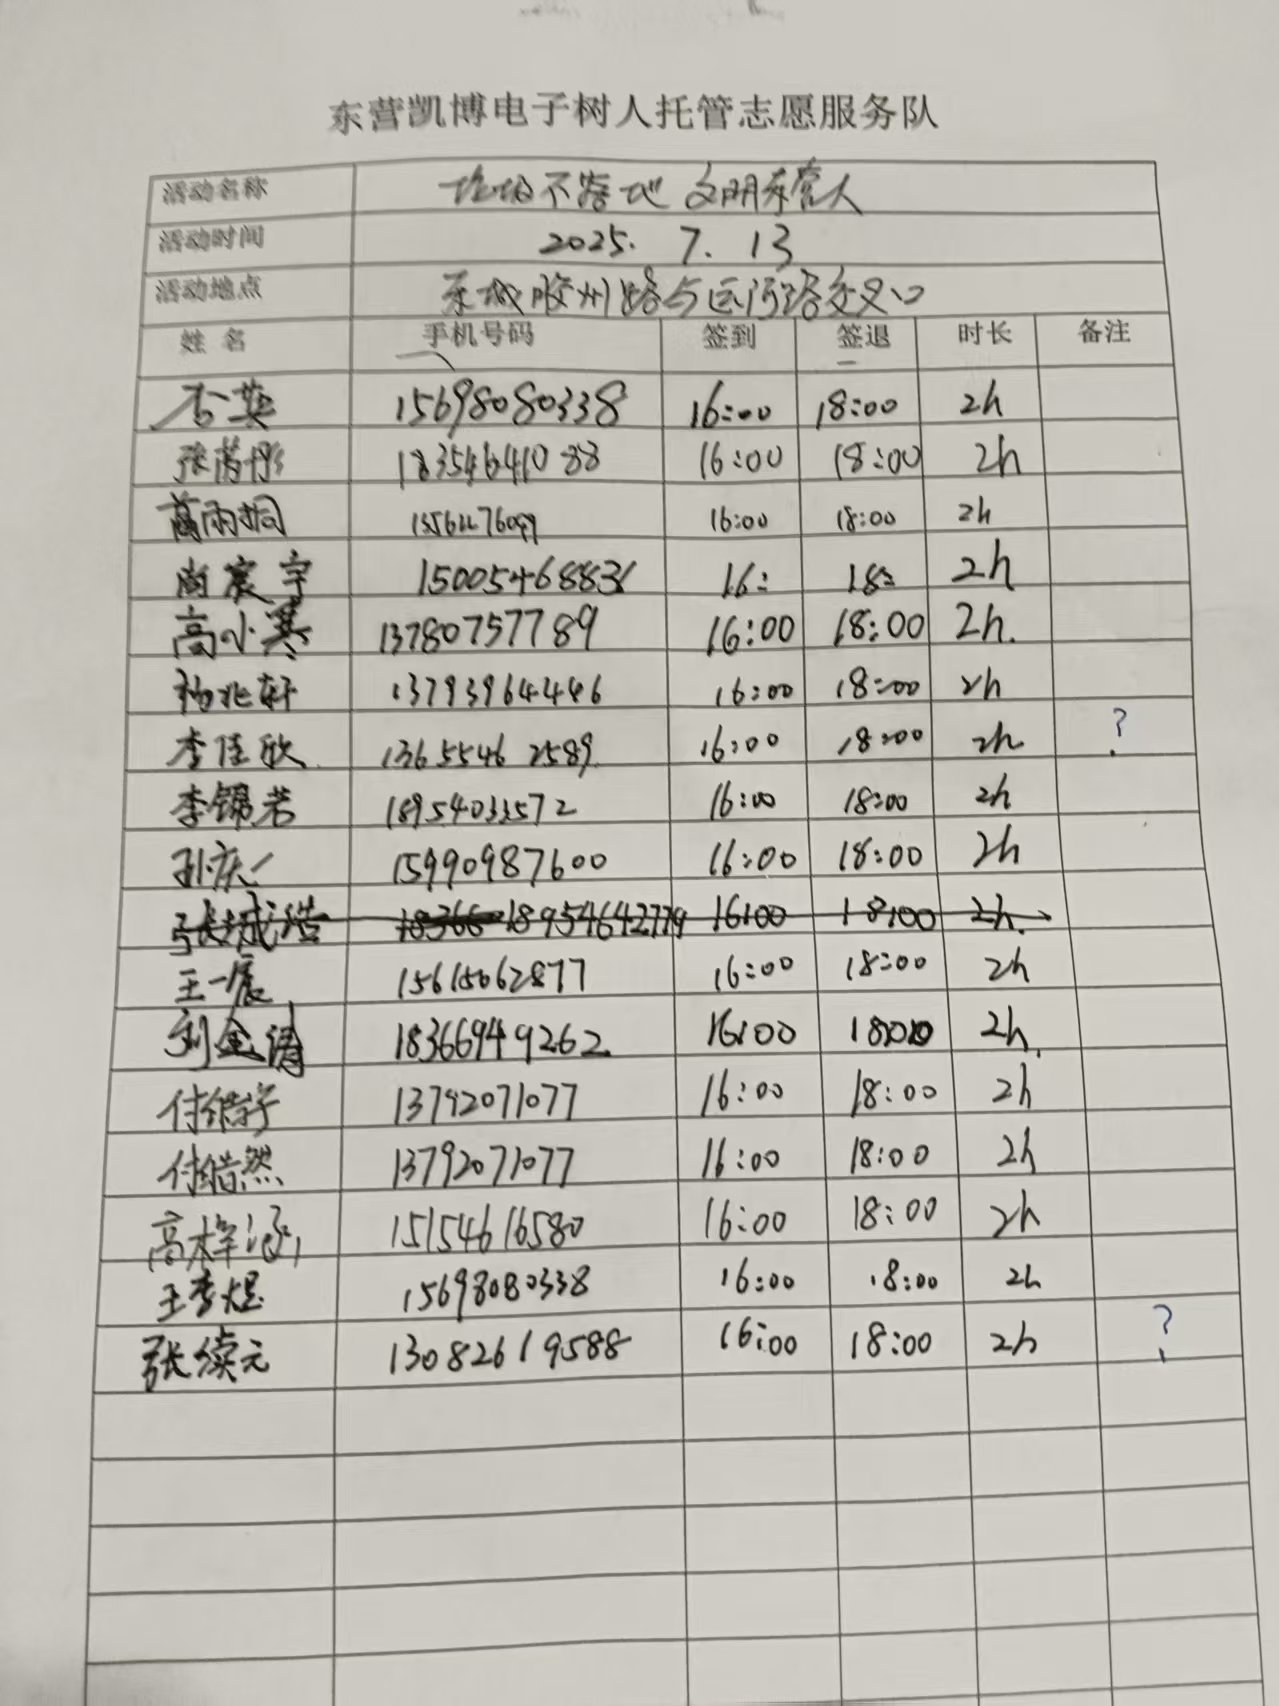 东营凯博电子树人托管志愿服务队
活动名称 垃圾不落地 文明东营人
活动时间 2025. 7. 13
活动地点 东城胶州路与运河路交叉口
姓名 手机号码 签到 签退 时长 备注
15698080338 16:00 18:00 2h
张芮彤 18354641088 16:00 18:00 2h
葛雨桐 16:00 18:00 2h
尚宸宇 15005468831 16: 18: 2h
高小寒 13780757789 16:00 18:00 2h.
杨兆轩 13793964446 16:00 18:00 2h
李佳欣 13655462589 16:00 18:00 2h ?
李锦若 18954033572 16:00 18:00 2h
孙庆一 15990987600 16:00 18:00 2h
张城浩 18366 18954642779 16:00 18:00 2h.
王一宸 15615062877 16:00 18:00 2h
刘金涛 18366949262 16:00 18:00 2h.
付皓宇 13792071077 16:00 18:00 2h
付皓然 13792071077 16:00 18:00 2h
高梓涵 15154616580 16:00 18:00 2h
王李煜 15698080338 16:00 18:00 2h
张续元 13082619588 16:00 18:00 2h ?